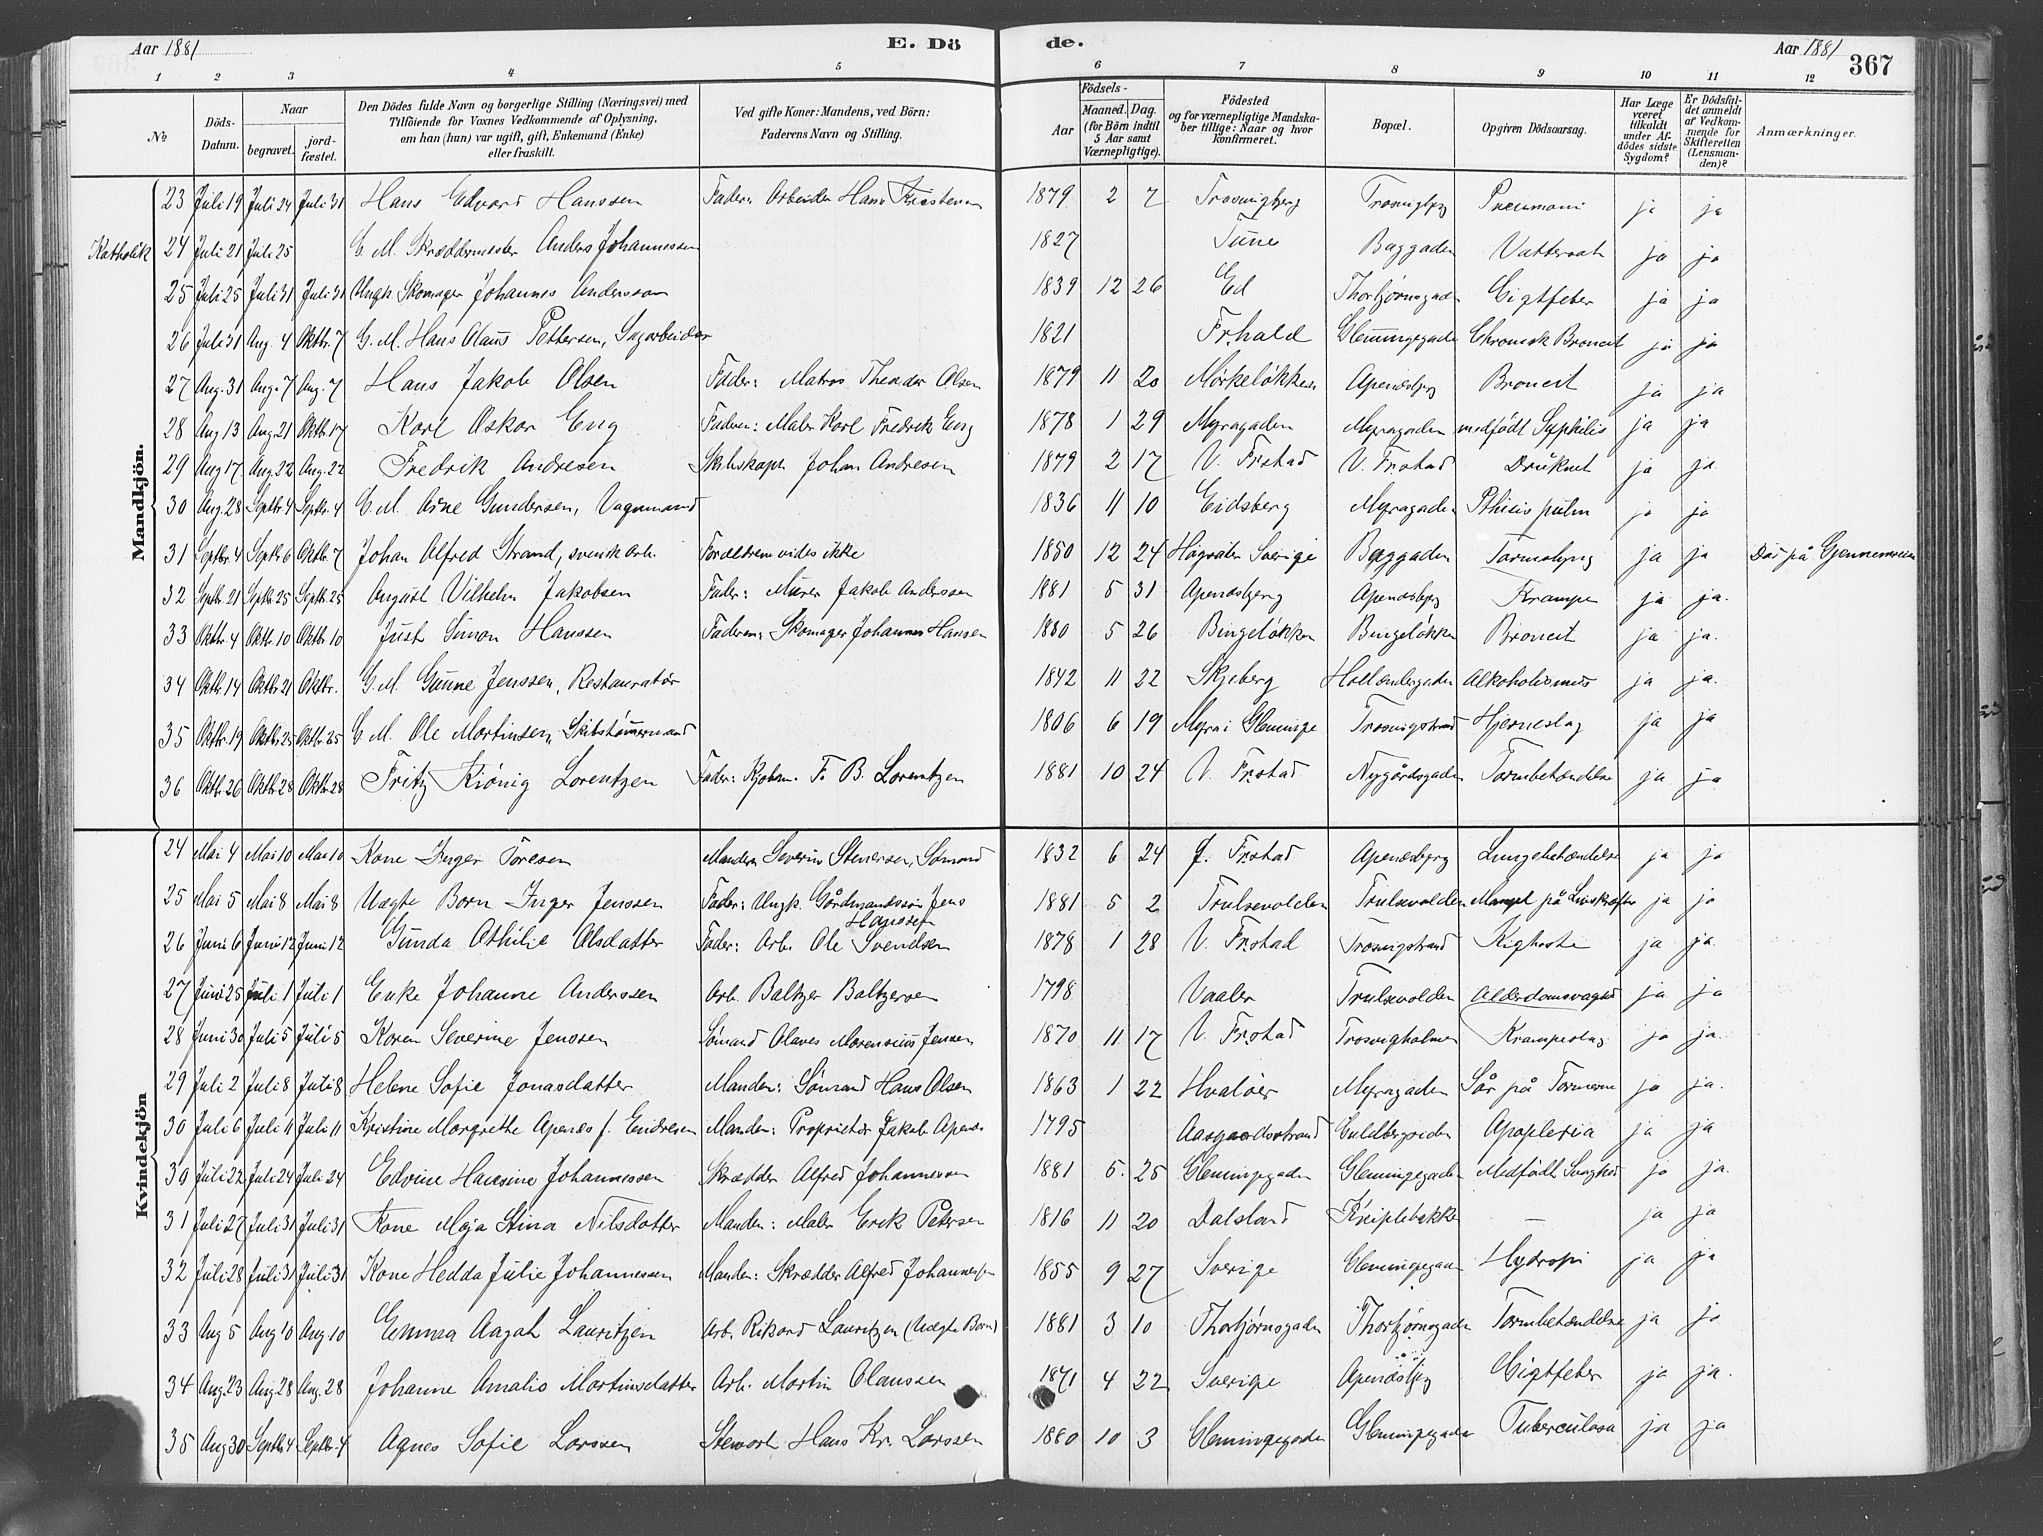 Aar 1881
E. Dö
de.
Aar 1881
367
1 2 3 4 5 6 7 8 9 10 11 12
No
Döds-Datum.
Naar
begravet.
jord-fæstet.
Den Dödes fulde Navn og borgerlige Stilling (Næringsvei) med
Tilföiende for Voxnes Vedkommende af Oplysning,
om han (hun) var ugift, gift, Enkemand (Enke)
eller fraskilt.
Ved gifte Koner: Mandens, ved Börn:
Faderens Navn og Stilling.
Födsels-
Aar
Maaned. Dag.
(for Börn indtil
5 Aar samt
Værnepligtige).
Födested
og for værnepligtige Mandska-
ber tillige: Naar og hvor
konfirmeret.
Bopæl.
Opgiven Dödsaarsag.
Har Læge
været
tilkaldt
under Af-
dödes sidste
Sygdom?
Er Dödsfal-
det anmeldt
af Vedkom-
mende for
Skifteretten
(Lensman-
den)?
Anmærkninger.
Mandkjön.
23 Juli 19 Juli 24 Juli 31 Hans Edvard Hanssen Fader: Arbeider Hans Kristensen 1879 2 7 Trosvigberg Trosvigbg Pneumoni ja ja
Katholik 24 Juli 21 Juli 25 E. M. Skræddermester Anders Johannessen 1827 Tune Baggaden Vattersot ja ja
25 Juli 25 Juli 31 Juli 31 Ungk. Skomager Johannes Andersson 1839 12 26 Ed Thorbjørnsgaden Gigtfeber ja ja
26 Juli 31 Aug. 4 Oktbr. 7 G. M. Hans Olaus Pettersen, Sagarbeider 1821 Fr.hald Glemmingegaden Chronisk Broncit ja ja
27 Aug. 31 Aug. 7 Aug. 7 Hans Jakob Olsen Fader: Matros Theodor Olsen 1879 11 20 Mörkelökken Apenæsbjerg Broncit ja ja
28 Aug 13 Aug 21 Oktb. 17 Karl Oskar Eng Faderen: Maler Karl Fredrik Eng 1878 1 29 Myragaden Myragaden medfødt Syphilis ja ja
29 Aug 17 Aug. 22 Aug. 22 Fredrik Andresen Skibskapt. Johan Andresen 1879 2 17 V. Frstad V. Frstad Druknet ja ja
30 Aug. 28 Septbr. 4 Septbr. 4 E. M. Arne Gundersen, Vognmand 1836 11 10 Eidsberg Myragaden Pthisis pulm ja ja
31 Septbr. 4 Septb. 6 Oktbr. 7 Johan Alfred Strand, svensk arb. Forældrene vides ikke 1850 12 24 Sverige Baggaden ja ja Død på Gjennemreise
32 Septbr. 21 Septb. 25 Septb. 25 August Vilhelm Jakobsen Fader: Murer Jakob Anderssen 1881 5 31 Apenæsbjerg Apenæsbjg Krampe ja ja.
33 Oktbr. 4 Oktb. 10 Oktbr. 10 Just Simon Hanssen Faderen: Skomager Johannes Hansen 1880 5 26 Bingeløkken Bingeløkken Broncit ja ja.
34 Oktb. 14 Oktbr 21 Oktbr. G. M. Gunne Jenssen, Restauratør 1842 11 22 Skjeberg Hollændergaden Alkoholismus ja ja.
35 Oktbr. 19 Oktbr. 25 Oktbr. 25 E M. Ole Martinsen, Skibstömmermand 1806 6 19 Myra i Glemminge Trosvigstrand Hjerneslag ja ja
36 Oktb. 26 Oktb. 28 Oktbr. 28 Fritz Kiönig Lorentzen Fader: Kjøbm. F. B. Lorentzen 1881 10 24 V. Frstad Nygårdsgaden Tarmbetændelse ja ja
Kvindekjön
24 Mai 4 Mai 10 Mai 10 Kone Inger Toresen Manden Severin Stenersen, Sømand 1832 6 24 G. Frstad Apenæsbjerg Lungebetændelse ja ja
25 Mai 5 Mai 8 Mai 8 Uægte Barn Inger Jenssen Fader: Ungk. Gårdmandssøn Jens Hanssen 1881 5 2 Trulsevolden Trulsevolden Mangel på Livskræfter ja ja
26 Juni 6 Juni 12 Juni 12 Gunda Othilie Olsdatter Fader: Arb. Ole Svendsen 1878 1 28 V. Frstad Trosvigstrand Kighoste ja ja.
27 Juni 25 Juli 1 Juli 1 Enke Johanne Anderssen Arb. Baltzer Baltzersen 1798 Vaaler Trulsevolden Alderdomssvaghed ja ja
28 Juni 30 Juli 5 Juli 5 Karen Severine Jenssen Sømand Olaves Morensius Jensen 1870 11 17 V. Frstad Trosvigholmen Krampeslag ja ja.
29 Juli 2 Juli 8 Juli 8 Helene Sofie Jonasdatter Manden: Sömand Hans Olsen 1863 1 22 Hvaløer Myragaden Sår på Tarmene ja ja.
30 Juli 6 Juli 11 Juli 11 Kristine Margrethe Apenæs f. Endresen Manden: Proprietær Jakob Apenæs 1795 Aasgaardsstrand Guldbergsiden Apoplexia ja ja
30 Juli 22 Juli 24 Juli 24 Edvine Hansine Johannessen Skrædder Alfred Johannessen 1881 5. 25 Glemmingegaden Glemmingegaden Medfødt Svaghed ja ja.
31 Juli 27 Juli 31 Juli 31 Kone Maja Stina Nilsdatter Manden: Maler Erik Petersen 1816 11 20 Dalsland Kniplebakken — ja ja
32 Juli 28 Juli 31 Juli 31 Kone Hedda Julie Johannessen Manden: Skrædder Alfred Johannessen 1855 9 27 Sverige Glemmingegaden Hydropi ja ja
33 Aug 5 Aug 10 Aug 10 Emma Aagot Lauritzen Arb. Rikard Lauritzen (Uægte Barn) 1881 3 10 Thorbjørnsgaden Thorbjørnsgaden Tarmbetændelse ja ja
34 Aug. 23 Aug 28 Aug. 28 Johanne Amalie Martinsdatter Arb. Martin Olaussen 1871 4 22 Sverige Apenæsbjg Gigtfeber ja ja.
35 Aug 30 Septbr 4 Septbr. 4 Agnes Sofie Larssen Stewart Hans Kr. Larssen 1880 10 3 Glemmingegaden Glemmingegaden Tuberculosa ja ja